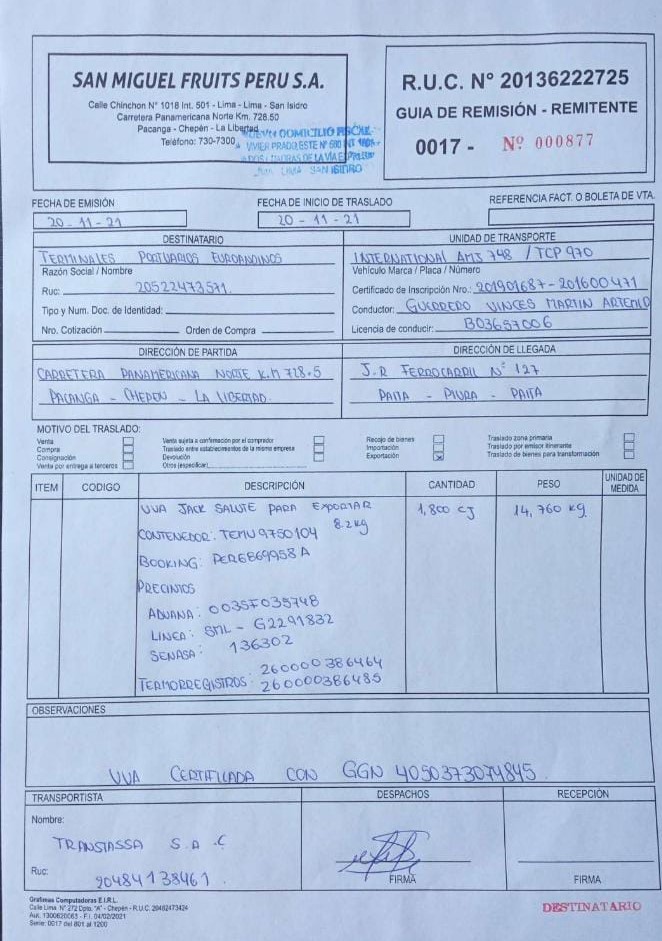 SAN MIGUEL FRUITS PERU S.A.
Calle Chinchon N° 1018 Int. 501 - Lima - Lima - San Isidro
Carretera Panamericana Norte Km. 728.50
Pacanga - Chepén - La Libertad
Teléfono: 730-7300
DOMICILIO FISCAL
LIMA SAN ISIDRO
R.U.C. N° 20136222725
GUIA DE REMISIÓN - REMITENTE
0017 - Nº 000877
FECHA DE EMISIÓN
20-11-21
FECHA DE INICIO DE TRASLADO
20-11-21
REFERENCIA FACT. O BOLETA DE VTA.
DESTINATARIO
TERMINALES PORTUARIOS EUROANDINOS
Razón Social / Nombre
Ruc: 20522473571
Tipo y Num. Doc. de Identidad:
Nro. Cotización Orden de Compra
UNIDAD DE TRANSPORTE
INTERNATIONAL AMJ 748 / TCP 970
Vehículo Marca / Placa / Número
Certificado de Inscripción Nro.: 201901687-201600471
Conductor: GUERRERO VINCES MARTIN ARTEMIO
Licencia de conducir: B03657006
DIRECCIÓN DE PARTIDA
CARRETERA PANAMERICANA NORTE K.M 728.5
PACANGA - CHEPEN - LA LIBERTAD.
DIRECCIÓN DE LLEGADA
J.R FERROCARRIL N° 127
PAITA - PIURA - PAITA
MOTIVO DEL TRASLADO:
Venta
Compra
Consignación
Venta por entrega a terceros
Venta sujeta a confirmación por el comprador
Traslado entre establecimientos de la misma empresa
Devolución
Otros (especificar)
Recojo de bienes
Importación
Exportación x
Traslado zona primaria
Traslado por emisor itinerante
Traslado de bienes para transformación
ITEM CODIGO DESCRIPCIÓN CANTIDAD PESO UNIDAD DE MEDIDA
UVA JACK SALUTE PARA EXPORTAR 1,800 CJ 14,760 Kg.
8.2 kg
CONTENEDOR: TEMU9750104
BOOKING: PER6869958A
PRECINTOS
ADUANA: 0035F035748
LINEA: SML - G2291832
SENASA: 136302
260000386464
TERMORREGISTROS: 260000386485
OBSERVACIONES
UVA CERTIFICADA CON GGN 4050373074845
TRANSPORTISTA
Nombre:
TRANSTASSA S.A.C
Ruc: 20484138461.
DESPACHOS
FIRMA
RECEPCIÓN
FIRMA
Grafimas Computadoras E.I.R.L.
Calle Lima N° 272 Dpto. "A" - Chepén - R.U.C. 20482473424
Aut. 1300620063 - F.I. 04/02/2021
Serie: 0017 del 801 al 1200
DESTINATARIO